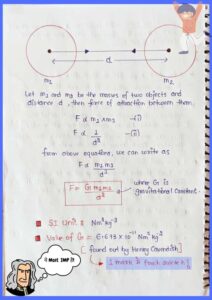 d
m₁ m₂
Let m₁ and m₂ be the masses of two objects and
distance d, then force of attraction between them,
F ∝ m₁ × m₂ —(i)
F ∝ 1/d² —(ii)
from above equations, we can write as
F ∝ m₁m₂/d²
F = G m₁m₂/d² where G is
gravitational constant.
SI Unit : Nm² kg⁻²
Value of G = 6.673 × 10⁻¹¹ Nm² kg⁻²
[found out by Henry Cavendish]
1 mark
Most IMP